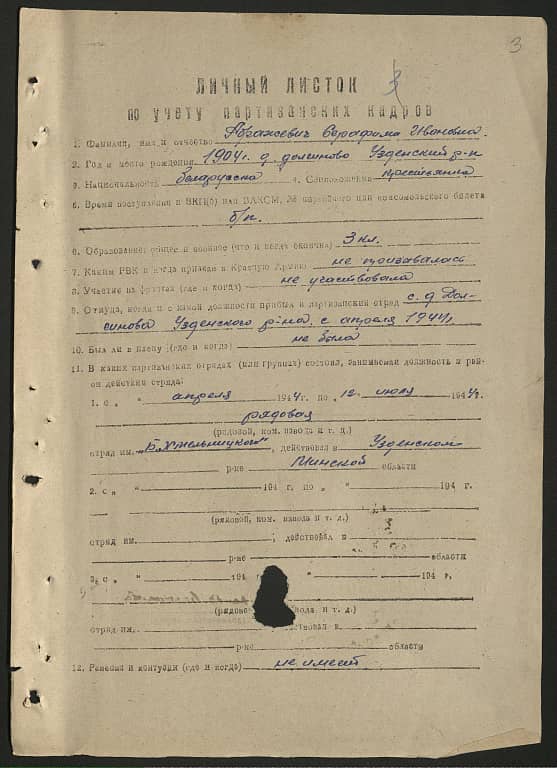 3
ЛИЧНЫЙ ЛИСТОК
3
по учету партизанских кадров
1. Фамилия, имя и отчество Абрамсевич Серафима Ивановна.
2. Год и место рождения 1904г. д. Долиново Узденский р-н
3. Национальность белорусска 4. Соцположение крестьянка
5. Время поступления в ВКП(б) или ВЛКСМ, № партийного или комсомольского билета
б/п.
6. Образование: общее и военное (что и когда окончил) 3 кл.
7. Каким РВК и когда призван в Красную Армию не призывалась
8. Участие на фронтах (где и когда) не участвовала
9. Откуда, когда и с какой должности прибыл в партизанский отряд с. д. Дол-
синова Узденского р-на. с апреля 1944г.
10. Был ли в плену (где и когда) не была
11. В каких партизанских отрядах (или группах) состоял, занимаемая должность и рай-
он действия отряда:
1. с „ " апреля 1944 г. по „ 12 " июля 1944г.
рядовая
(рядовой, ком. взвода и т. д.)
отряд им. „Б. Хмельницкого", действовал в Узденском
р-не Минской области
2. с „ " 194 г. по „ " 194 г.
(рядовой, ком. взвода и т. д.)
отряд им. ; действовал в
р-не области
3. с „ " 194 " 194 г.
(рядово взвода и т. д.)
отряд им. ствовал в
р-не области
12. Ранения и контузии (где и когда) не имеет